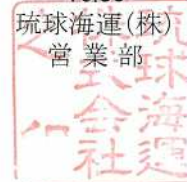 琉球海運(株)
営業部
琉球海運
株式会社
之